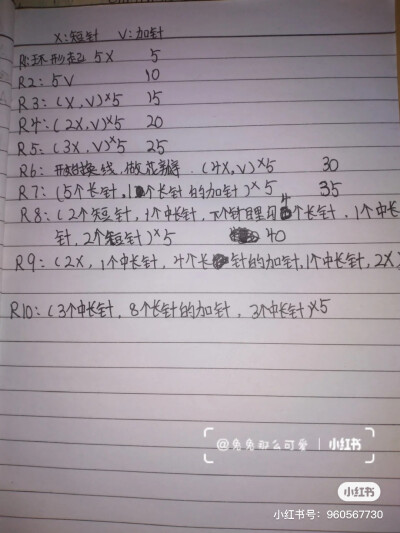 X:短针 V:加针
R1:环形起 5X 5
R2: 5V 10
R3: (X,V)×5 15
R4: (2X,V)×5 20
R5: (3X,V)×5 25
R6: 开始换线,做花瓣.(4X,V)×5 30
R7: (5个长针,1个长针的加针)×5 35
R8: (2个短针,1个中长针,下个针里勾4个长针,1个中长
针,2个短针)×5 40
R9: (2X,1个中长针,4个长针的加针,1个中长针,2X)
R10: (3个中长针,8个长针的加针,3个中长针)×5
@兔兔那么可爱 | 小红书
小红书
小红书号:960567730